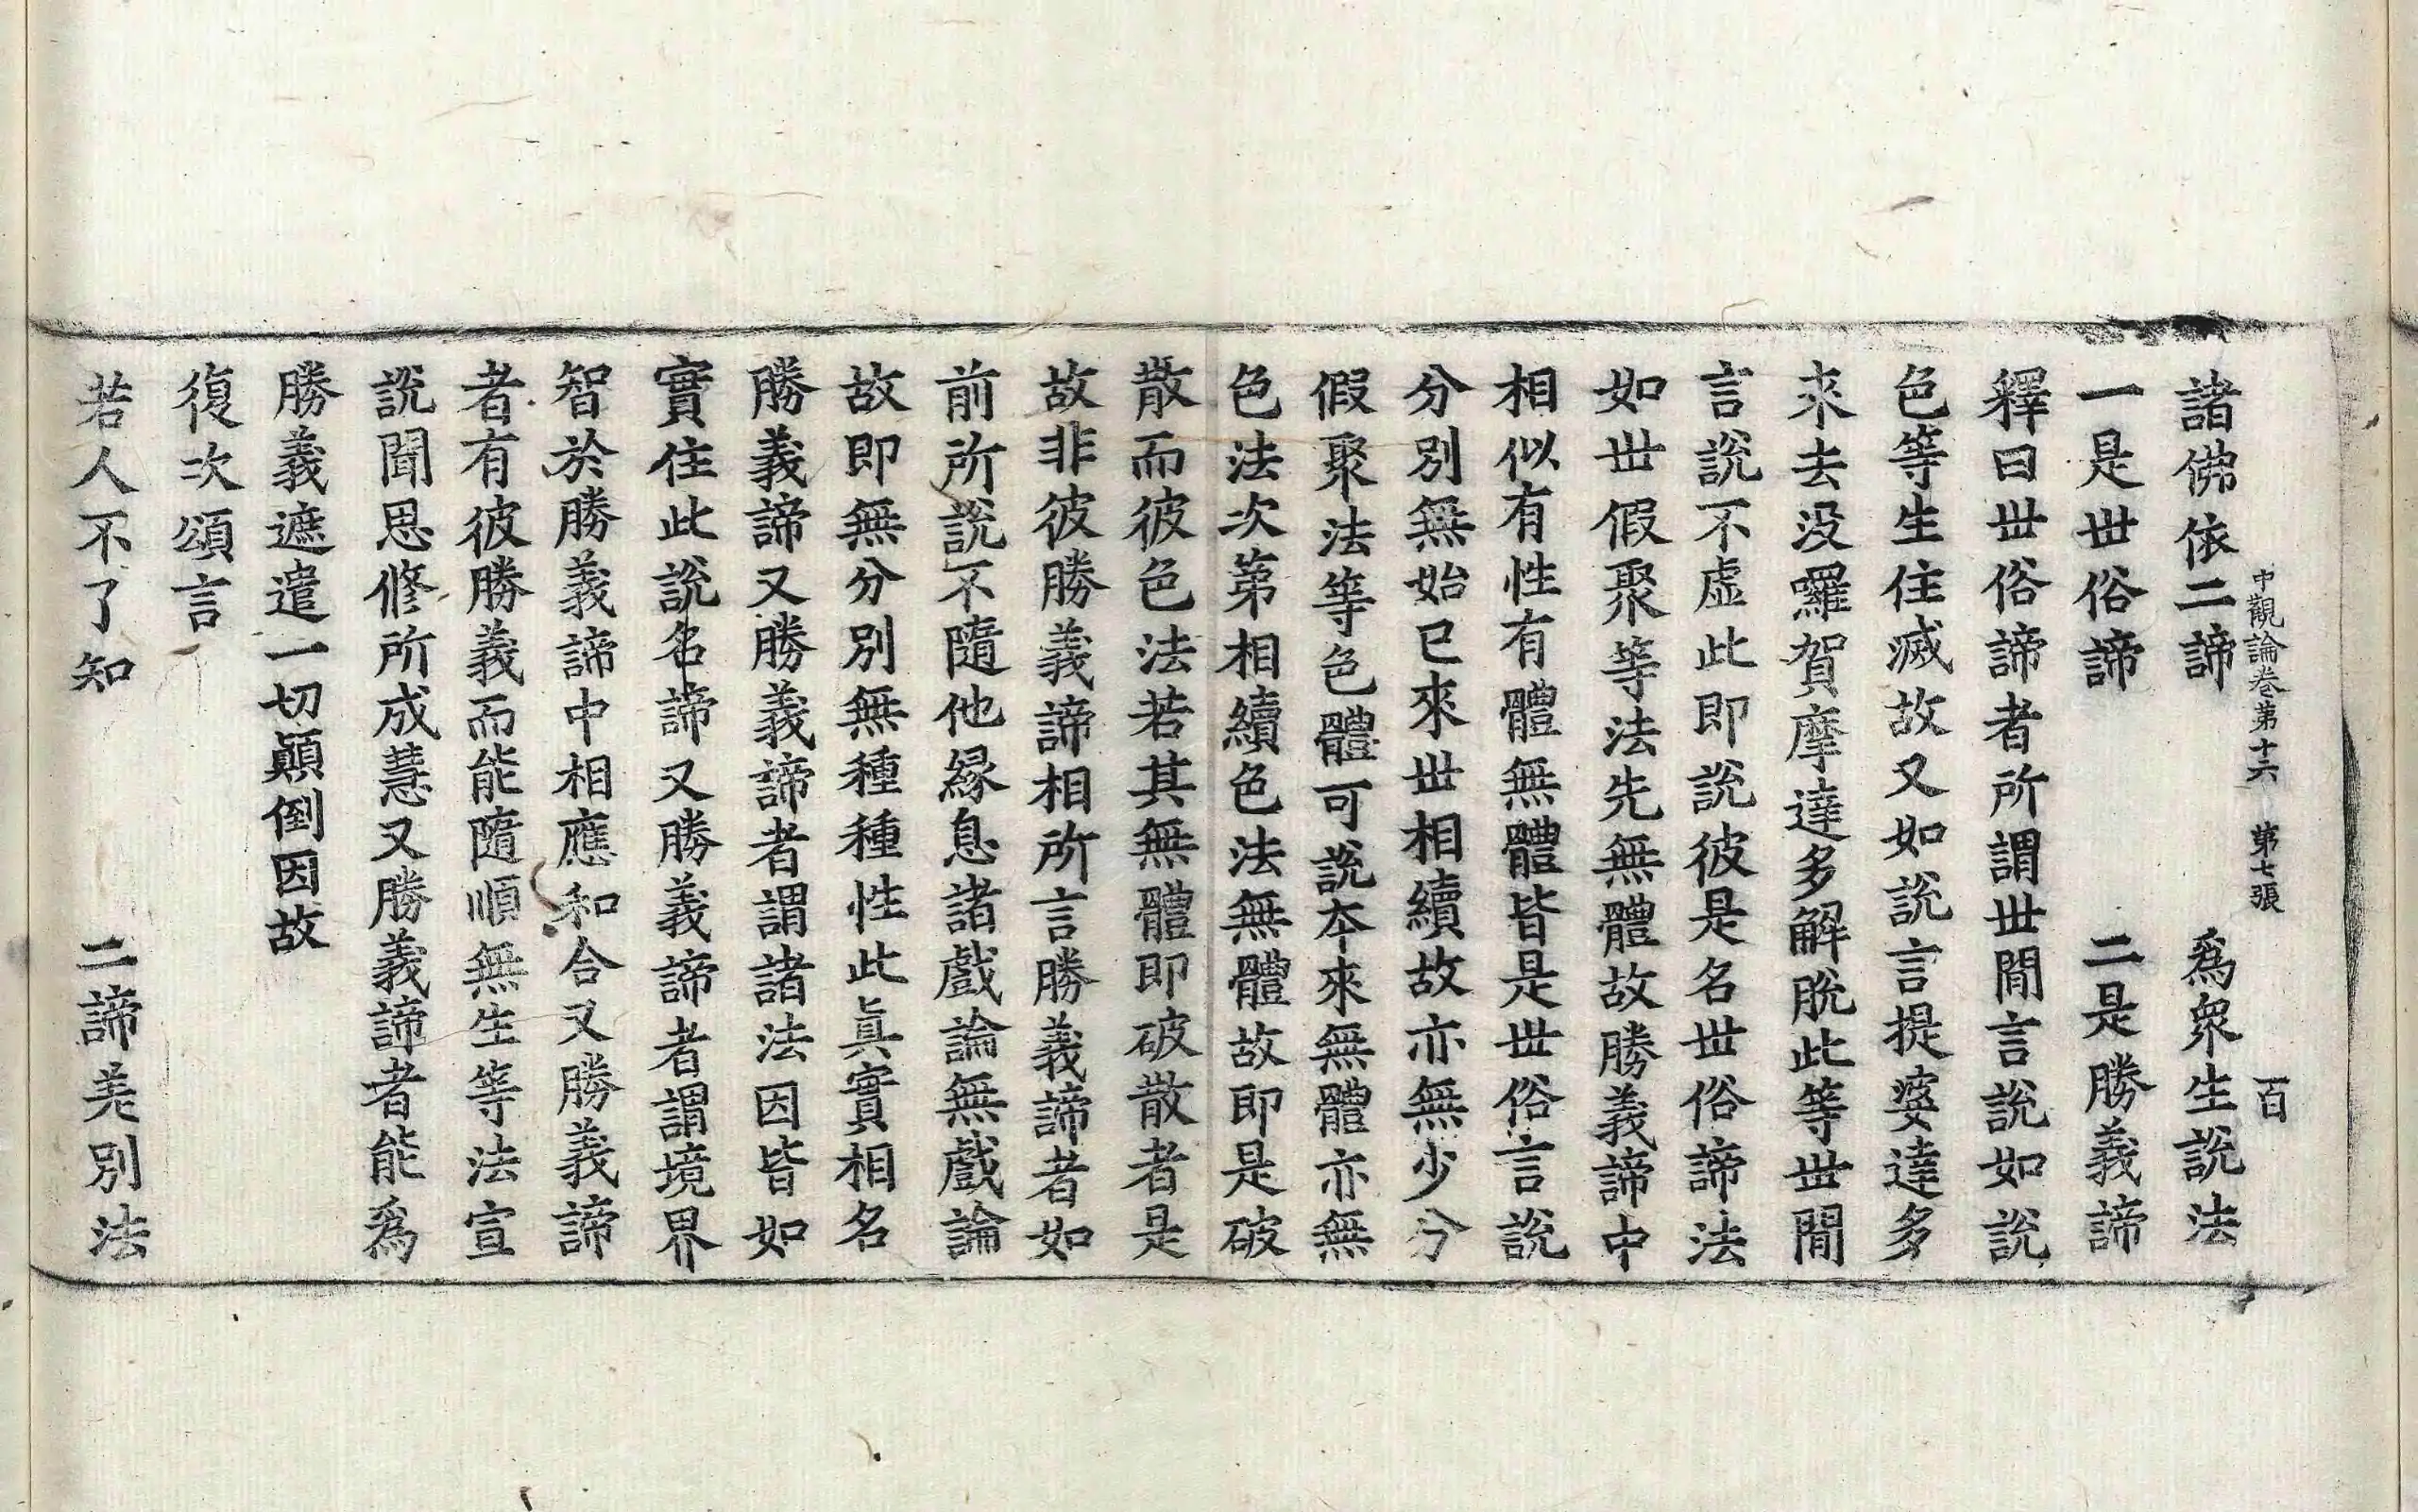 中觀論卷第十六 第七張 百
諸佛依二諦 爲衆生說法
一是世俗諦 二是勝義諦
釋曰世俗諦者所謂世閒言說如說
色等生住滅故又如說言提婆達多
來去沒囉賀摩達多解脫此等世閒
言說不虛此即說彼是名世俗諦法
如世假聚等法先無體故勝義諦中
相似有性有體無體皆是世俗言說
分別無始已來世相續故亦無少分
假聚法等色體可說夲來無體亦無
色法次第相續色法無體故即是破
散而彼色法若其無體即破散者是
故非彼勝義諦相所言勝義諦者如
前所說不隨他緣息諸戲論無戲論
故即無分別無種種性此眞實相名
勝義諦又勝義諦者謂諸法因皆如
實住此說名諦又勝義諦者謂境界
智於勝義諦中相應和合又勝義諦
者有彼勝義而能隨順無生等法宣
說聞思修所成慧又勝義諦者能爲
勝義遮遣一切顚倒因故
復次頌言
若人不了知 二諦差別法